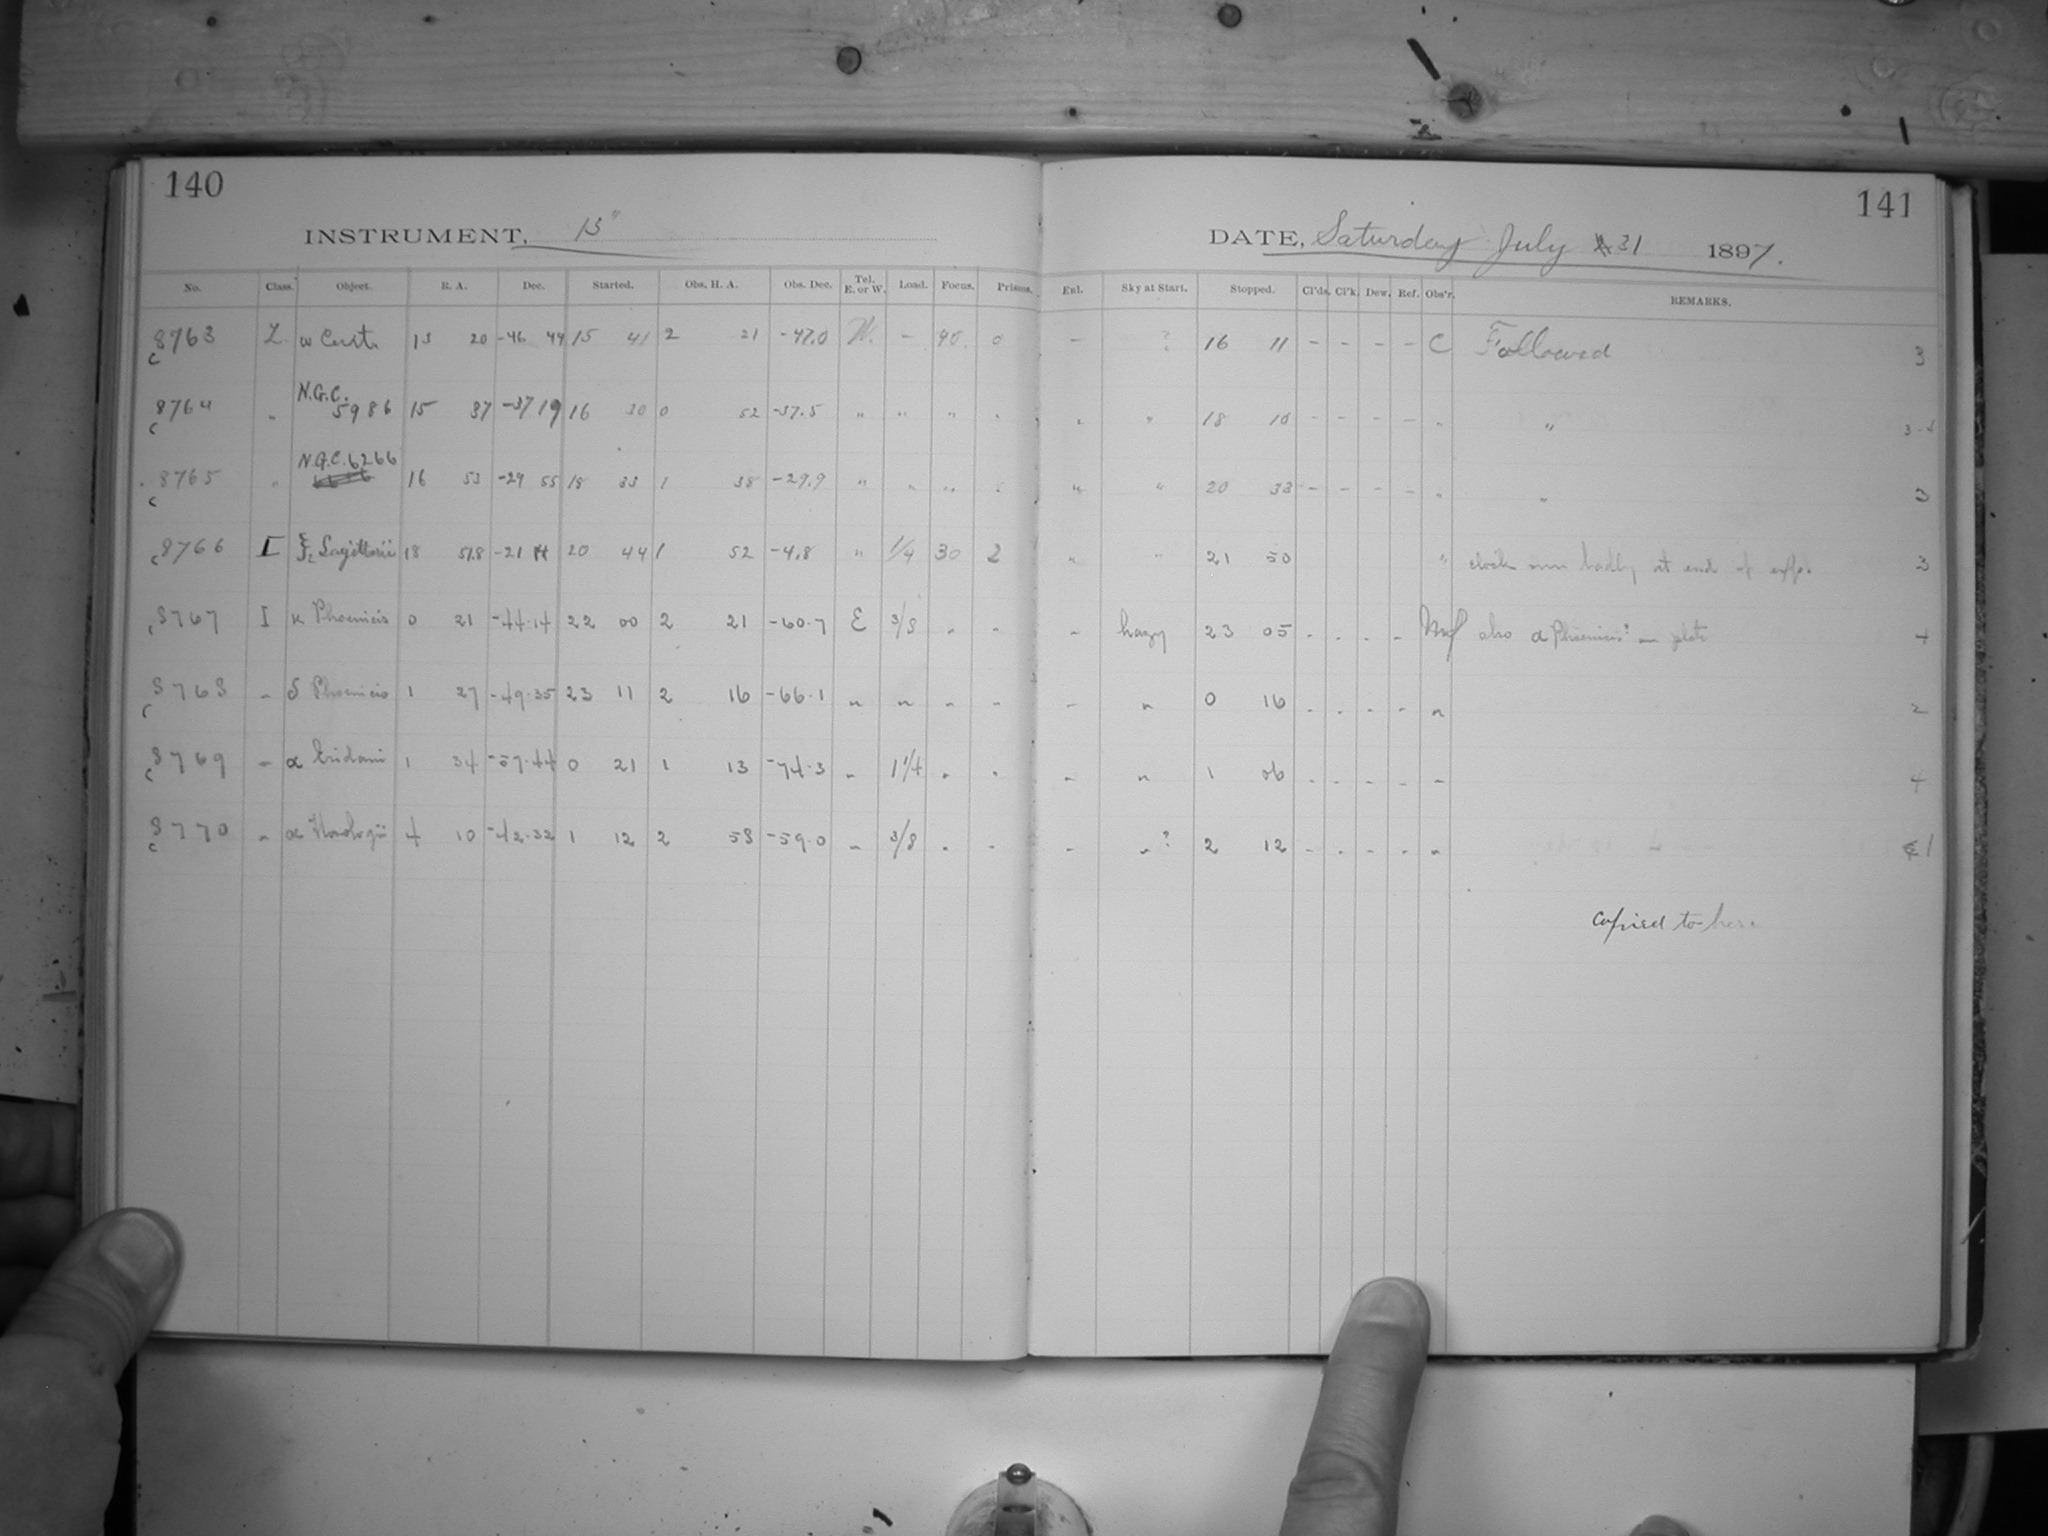 140
INSTRUMENT, 13"
No. Class. Object. R. A. Dec. Started. Obs. H. A. Obs. Dec. Tel. E. or W. Load. Focus. Prisms.
8763 L ω Cent. 13 20 -46 44 15 41 2 21 -47.0 W. - 40. 0
c
8764 " N.G.C. 5986 15 37 -37 19 16 30 0 52 -37.5 " " " "
c
8765 " N.G.C. 6266 16 53 -29 55 18 33 1 38 -29.9 " " " "
c
8766 I ξ2 Sagittarii 18 51.8 -21 14 20 44 1 52 -4.8 " 1/4 30 2
c
8767 I κ Phoenicis 0 21 -44.14 22 00 2 21 -60.7 E 3/8 " "
c
8768 " δ Phoenicis 1 27 -49.35 23 11 2 16 -66.1 " " " "
c
8769 " α Eridani 1 34 -57.44 0 21 1 13 -74.3 " 1 1/4 " "
c
8770 " α Horologii 4 10 -42.32 1 12 2 58 -59.0 " 3/8 " "
c
141
DATE, Saturday July 31 1897.
Enl. Sky at Start. Stopped. Cl'ds. Cl'k. Dew. Ref. Obs'r. REMARKS.
- ? 16 11 - - - - C Followed 3
" " 18 10 - - - - " "
" " 20 33 - - - - " " 3
" " 21 50 " clock run badly at end of exp. 3
- hazy 23 05 - - - - also α Phoenicis? on plate 4
- " 0 16 - - - - " 2
- " 1 06 - - - - " 4
- " ? 2 12 - - - - " 1
Copied to here